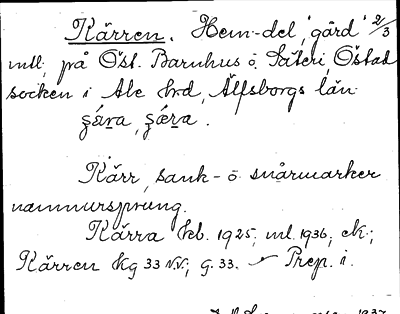 Kärren. Hem-del, "gård" 2/3
mtl, på Öst. Barnhus o. Säteri, Östad
socken i Ale hrd, Älfsborgs län.
Kärr, sank- o snårmarker
namnursprung.
Kärra kb. 1925, ml. 1936, ek.;
Kärren Kg 33 N.V.; G. 33. Prep. i.
1937